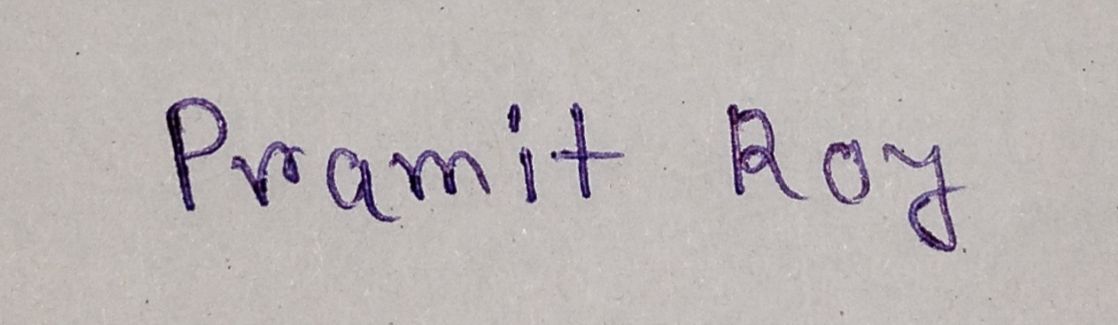 Pramit Roy